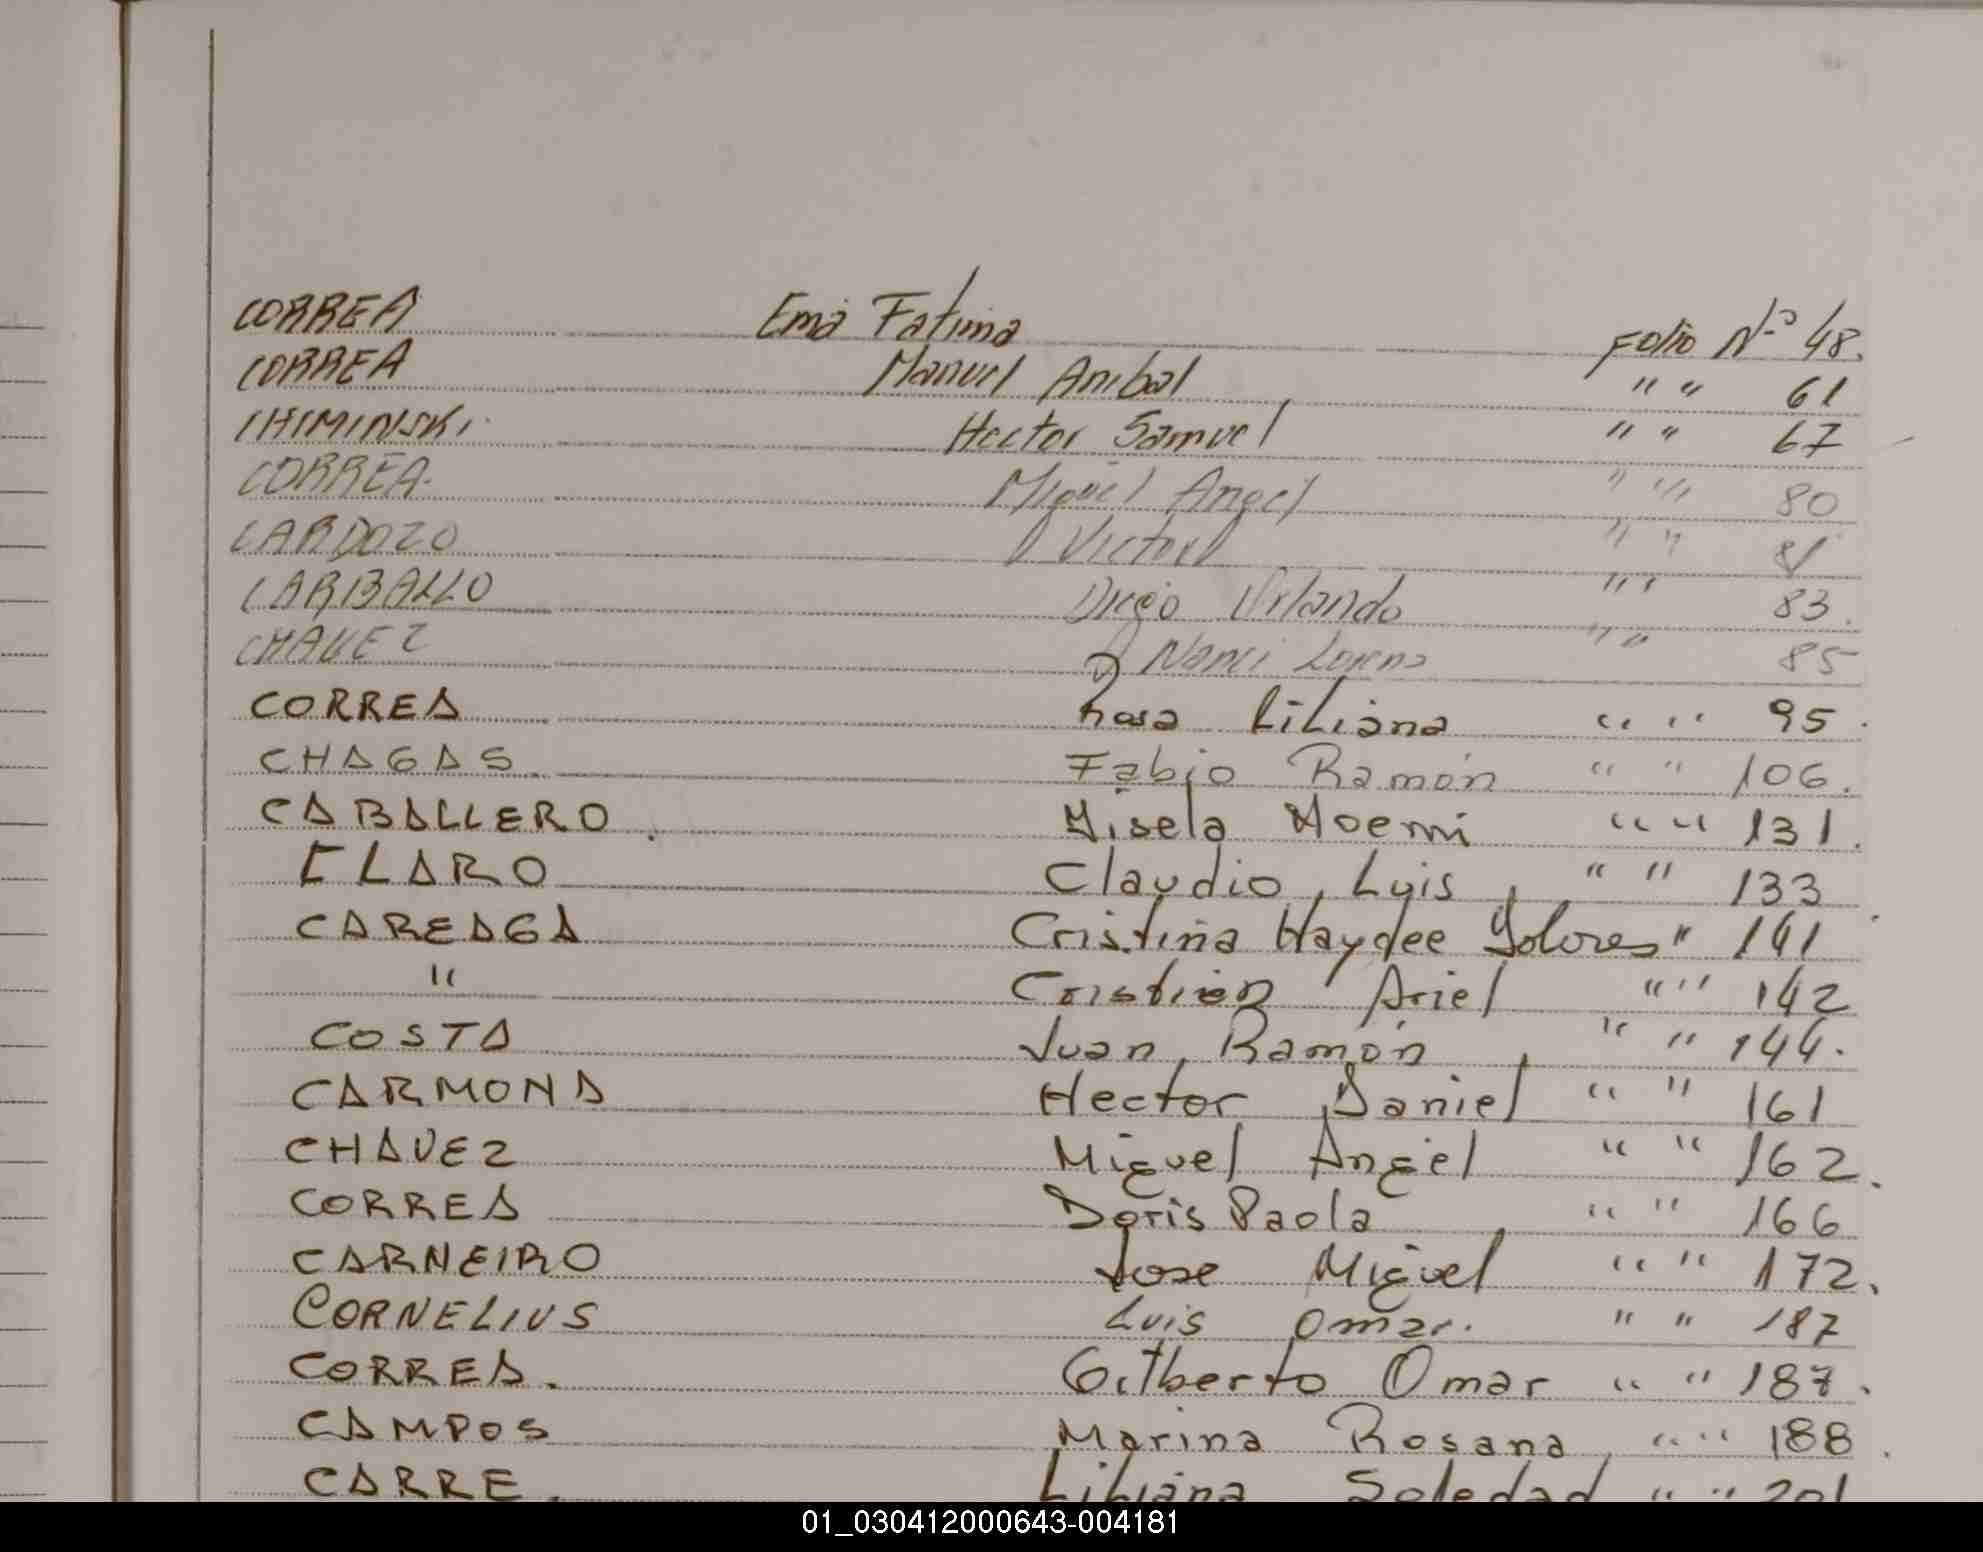 CORREA Ema Fatima Folio Nº 48.
CORREA Manuel Anibal " " 61
CHIMINSKI. Hector Samuel " " 67
CORREA. Miguel Angel " " 80
CARDOZO Victor " " 81
CARBALLO Diego Orlando " " 83.
CHAVEZ Nanci Lorena " " 85
CORREA Rosa Liliana " " 95.
CHAGAS. Fabio Ramón " " 106.
CABALLERO. Gisela Noemi " " 131.
CLARO Claudio Luis, " " 133
CAREAGA Cristina Haydee Dolores " 141
" Cristian Ariel " " 142
COSTA Juan Ramón, " " 144.
CARMONA Hector Daniel " " 161
CHAVEZ Miguel Angel " " 162.
CORREA Doris Paola, " " 166
CARNEIRO Jose Miguel " " 172.
CORNELIUS Luis Omar. " " 187
CORREA. Gilberto Omar " " 187.
CAMPOS Marina Rosana, " " 188.
CARRE. Liliana Soledad " " 201
01_030412000643-004181